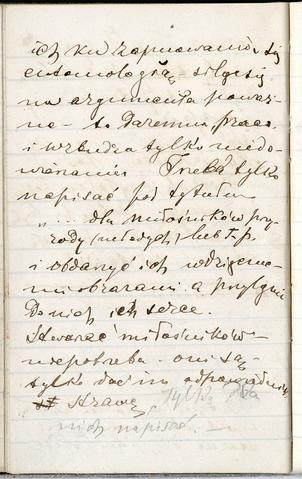 ich ku zajmowaniu się
entomologią, siląc się
na argumenta poważ-
ne – to daremna praca
i wzbudza tylko niedo-
wierzanie. Trzeba tylko
napisać pod tytułem
„... dla miłośników przy-
rody (młodych) lub t. p.
i obdarzyć ich wdzięcznemi
obrazami a przylgnie
do nich ich serce.
Stwarzać miłośników –
niepotrzeba – oni są,
tylko dać im odpowiednią
strawę tylko dla
nich napisać. –